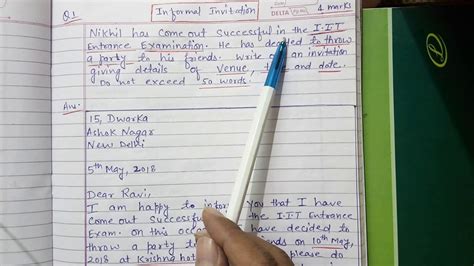 Informal Invitation
DELTA
4 marks
Q1
Nikhil has come out successful in the I.I.T
Entrance Examination. He has decided to throw
a party to his friends. Write an invitation
giving details of venue, and date.
Do not exceed 50 words.
Ans:
15, Dworka
Ashok Nagar
New Delhi
5th May, 2018
Dear Ravi,
I am happy to inform you that I have
come out successful the I.I.T Entrance
Exam. On this have decided to
throw a party t friends on 10th May,
2018 at Krishna hot please do